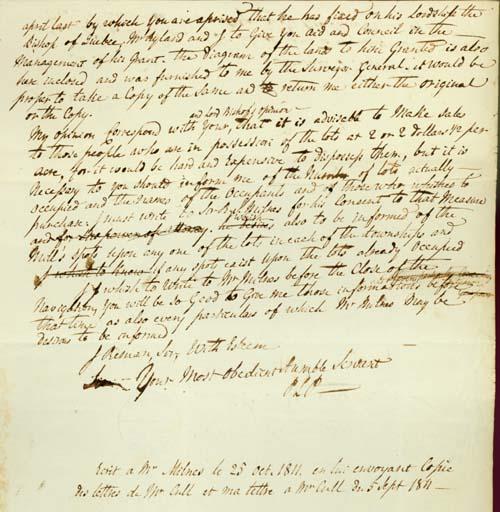 april last by which you are aprised that he has fixed on his Lordship the
Bishop of Quebec, Mr Ryland and I to Give you aid and Council in the
Management of his Grant. the Diagram of the lands to him Granted is also
here inclosed and was furnished to me by the Surveyor General. it would be
proper to take a Copy of the Same and return me either the original
or the Copy.
and Lord Bishop's opinion
My opinion Correspond with Your, that it is adviseble to Make Sale
to those people who are in possession of the lots at 2 or 2 Dollars 1/2 per
acre, for it would be hard and expensive to disposess them, but it is
Necessary to you should inform me of the Number of lots actually
occupied and the Names of the Occupants and of those who wishes to
purchase. I must write to Sir Milnes for his Consent to that Measure
he wishes also to be informed of the
Mill's Spots upon any one of the lots in each of the townships and
if any Spot exist upon the lots already Occupied
I wish to Write to Mr Milnes before the Close of the
Navigation, you will be so Good to Give me those informations before
that time as also every particulars of which Mr Milnes May be
desirous to be informed
I Remain, Sir, With Esteem
Your Most Obedient Humble Servant
Ecrit a Mr Milnes le 25 oct. 1811. en lui envoyant Copie
des lettres de Mr Cull et ma lettre a Mr Cull du 5 Sept 1811 —